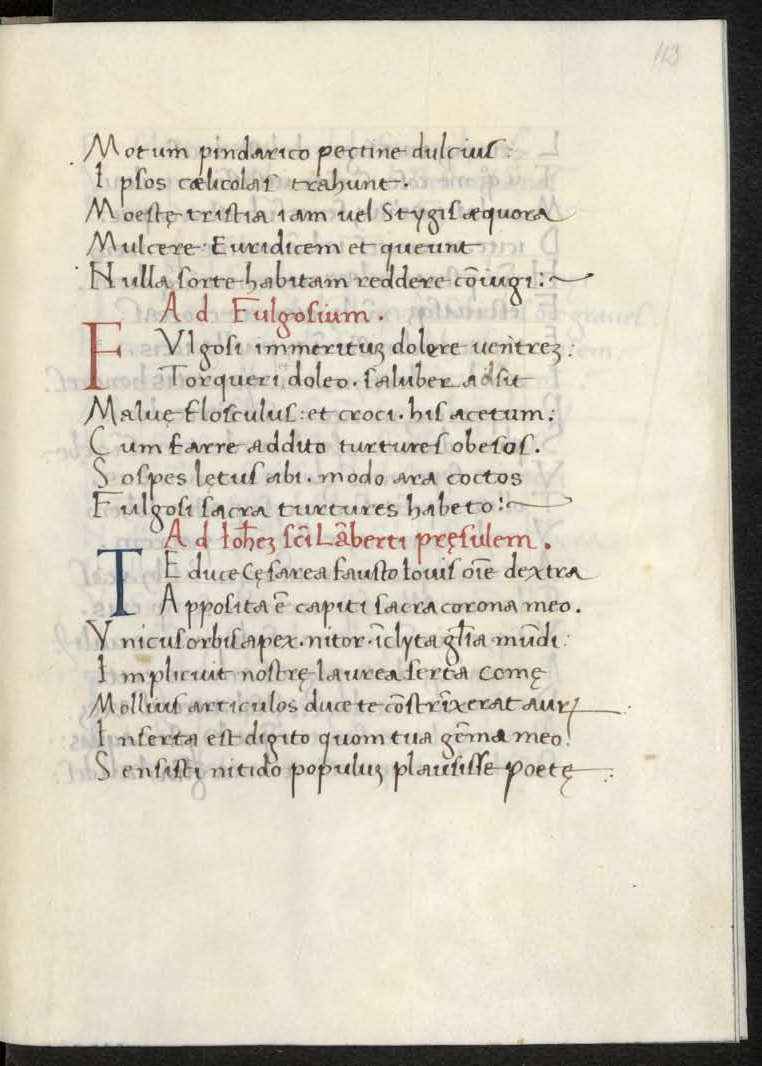 43
Motum pindarico pectine dulcius:
Ipsos cælicolas trahunt.
Moestę tristia iam uel Stygis æquora
Mulcere: Euridicem et queunt
Nulla sorte habitam reddere cōiugi:~
Ad Fulgosium.
FVlgosi immeritus dolore uentrez:
Torqueri doleo. saluber adsit
Maluę flosculus: et croci. his acetum:
Cum farre addito turtures obesos.
Sospes lętus abi. modo ara coctos
Fulgosi sacra turtures habeto:~
Ad Iohez sc̄i Lāberti pręsulem.
TE duce Cęsarea fausto Iouis oīe dextra
Apposita ē capiti sacra corona meo.
Vnicus orbis apex. nitor. īclyta gl̄ia mūdi:
Impliciuit nostrę laurea serta comę
Mollius articulos duce te cōstrīxerat aurum.
Inserta est digito quom tua gēma meo:
Sensisti nitido populuz plausisse poetę: